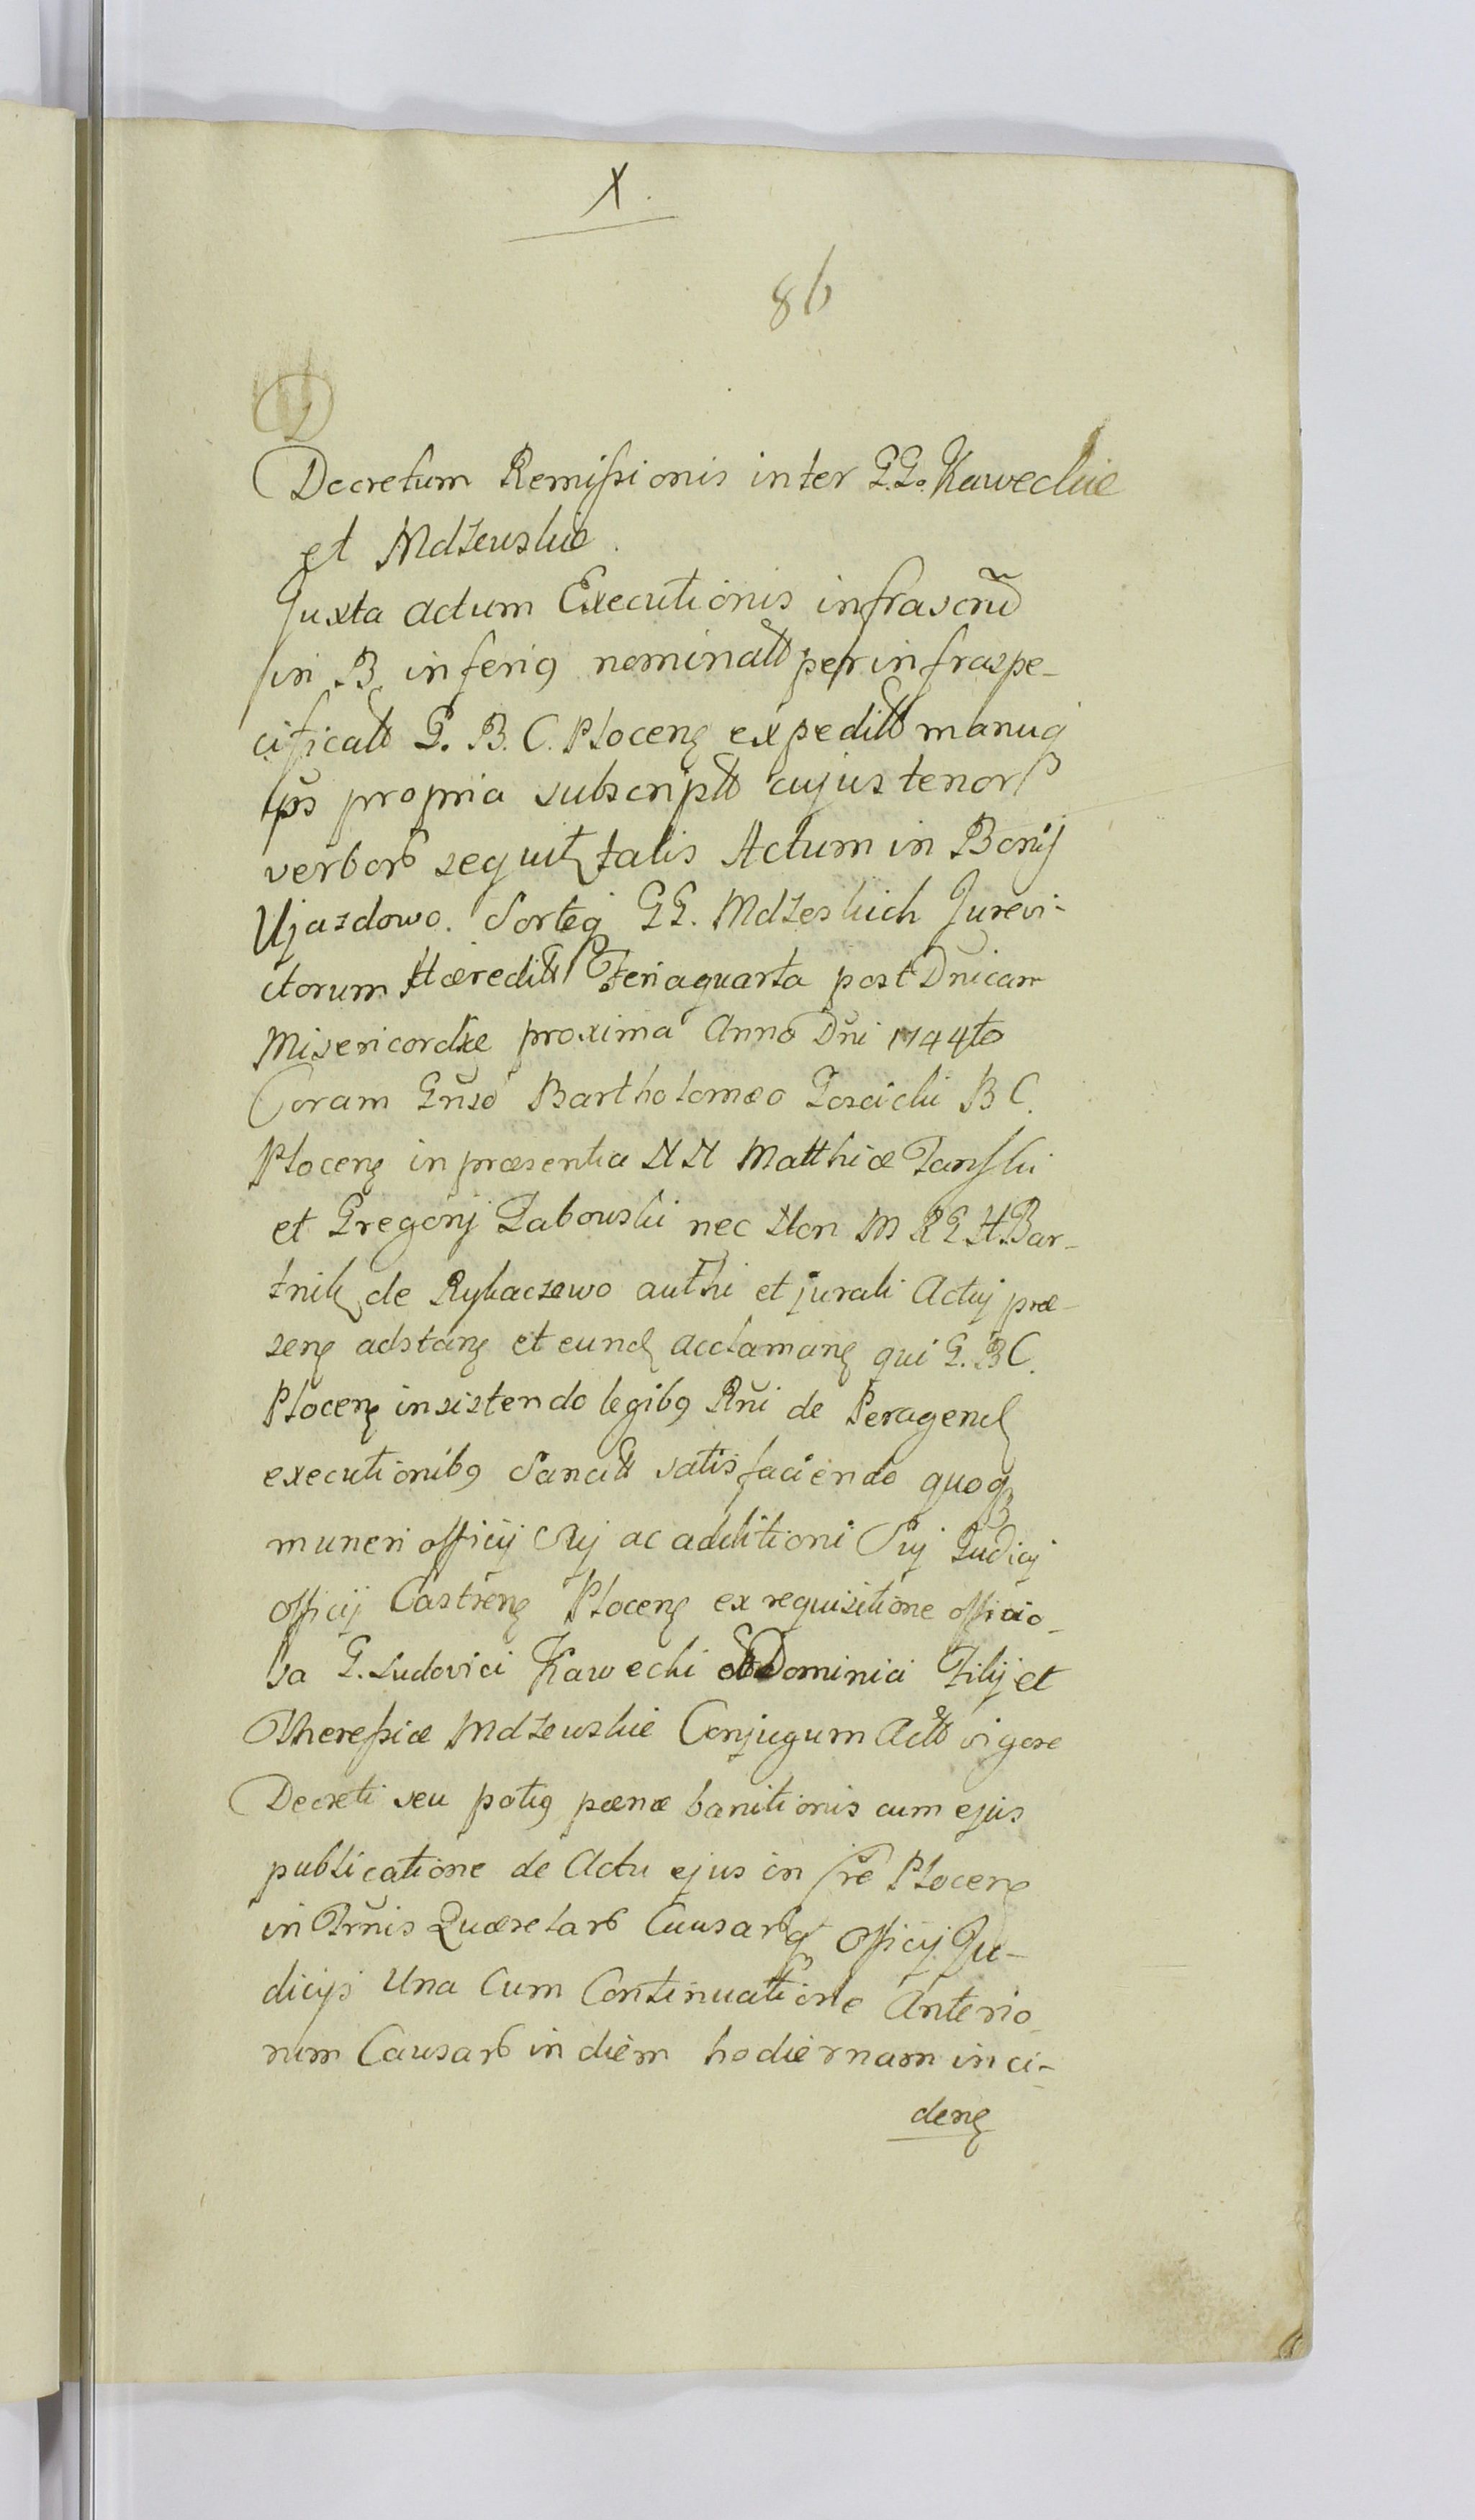 X.
86
D
Decretum Remissionis inter G.G. Kaweckie
et Mdzeuskie.
Juxta actum Executionis infrascrūd
in B. inferig nominatt per infraspe-
cificatt G. B. C. Plocen expeditt manuq
ips propria subscriptt cujus tenor
verbor sequit talis Actum in Bonij
Ujazdowo. Sorteq GG. Mdzeskich Jurevi-
ctorum Hæreditt Feria quarta post Dnicam
Misericordiæ proxima Anno Dni 1744to
Coram Gnso Bartholomæo Goscicki B C.
Plocen in præsentia NN Matthiæ Janski
et Gregorij Gabouski nec Non M R G H. Bar-
tnik de Rykaczewo authi et jurati Actuj præ-
sen adstan et eund acclaman qui G. B C.
Plocen insistendo legibg Rni de Peragend
executionibg Sancitt satisfaciendo quoq
muneri officij Suj ac additioni Suj Judicij
officij Castren Plocen ex requisitione officio-
sa G. Ludovici Kawecki Dominici Filij et
Theressiæ Mdzeuskie Conjugum Actt vigore
Decreti seu potig pænæ banitionis cum ejus
publicatione de Actu ejus in fre Plocen
in Trnis Quæretar Causarq officij Ju-
dicijs Una Cum Continuatione Anterio-
rum Causar in diem hodiernam inci-
den